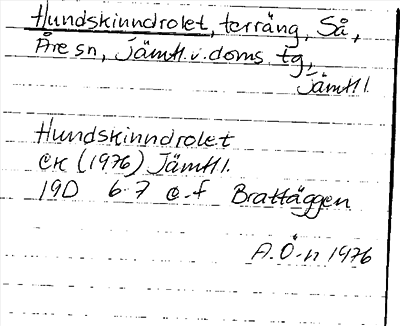 Hundskinndrolet, terräng, Så,
Åre sn, Jämtl. v. doms. tg,
Jämtl.
Hundskinndrolet
EK (1976) Jämtl.
19D 6-7 e-f Brattäggen
A. Ö-n 1976